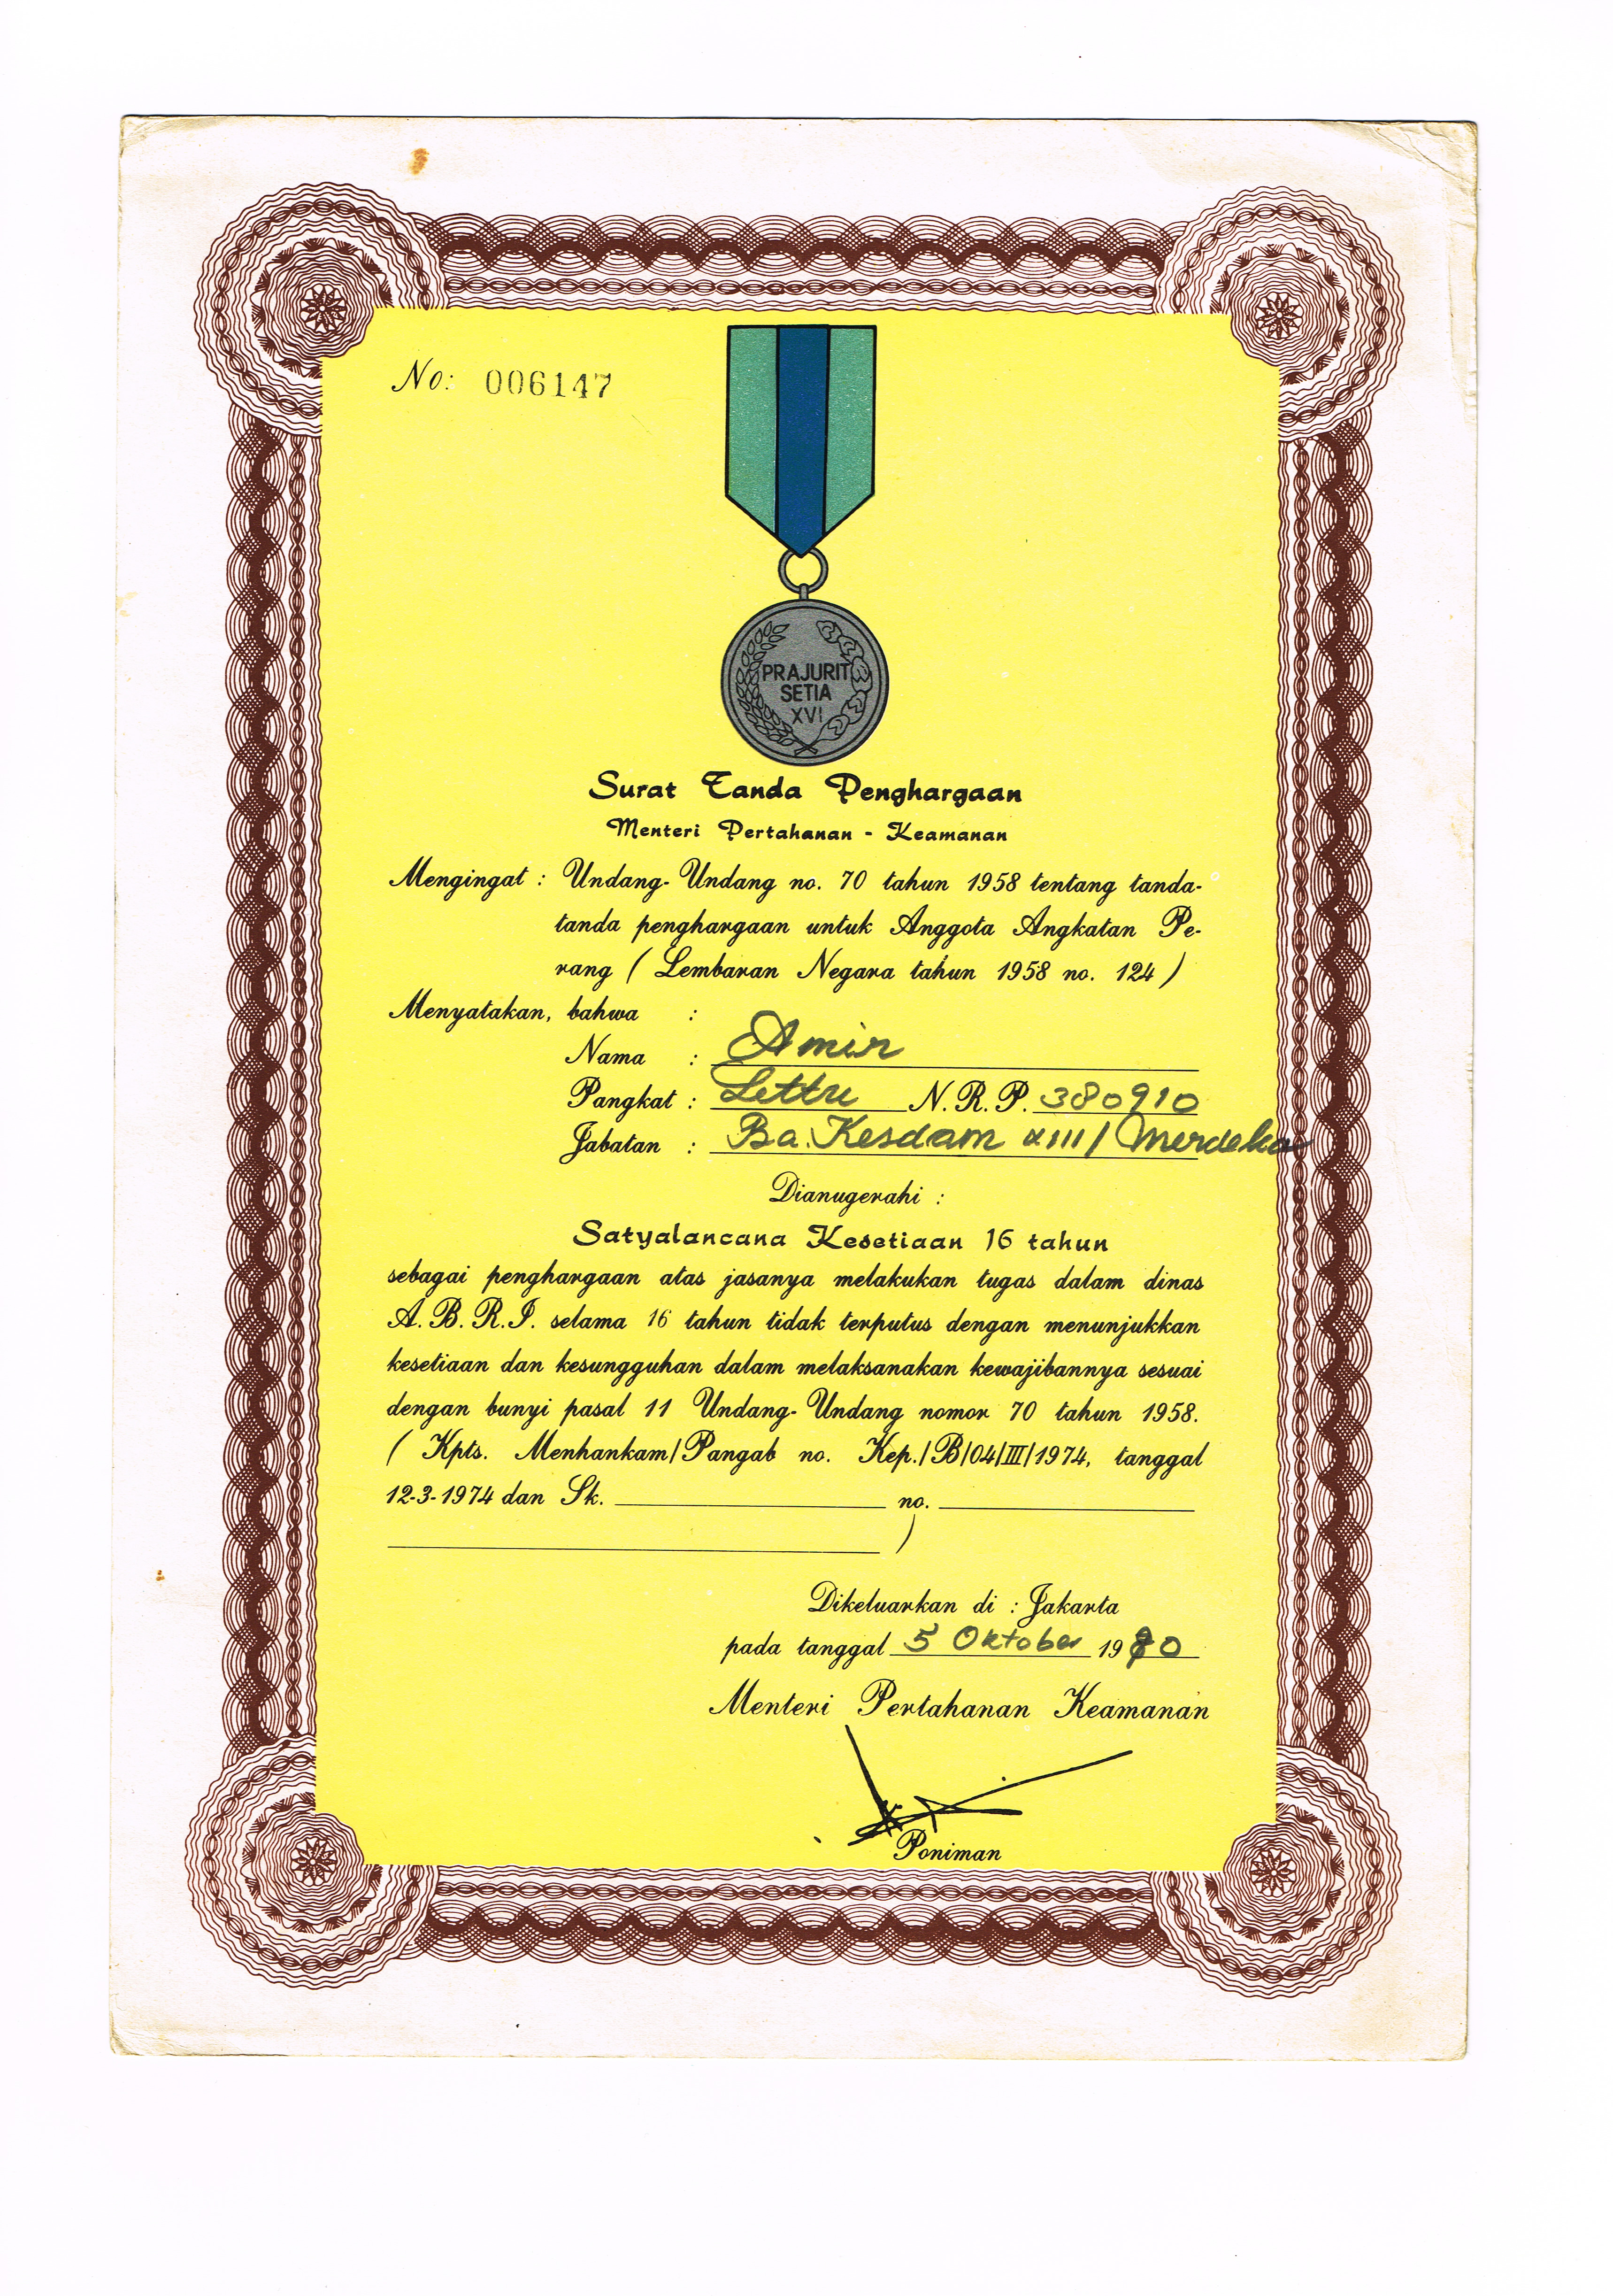 No: 006147
PRAJURIT
SETIA
XVI
Surat Tanda Penghargaan
Menteri Pertahanan - Keamanan
Mengingat : Undang-Undang no. 70 tahun 1958 tentang tanda-
tanda penghargaan untuk Anggota Angkatan Pe-
rang ( Lembaran Negara tahun 1958 no. 124 )
Menyatakan, bahwa :
Nama : Amir
Pangkat : Lettu N.R.P. 380910
Jabatan : Ba. Kesdam XIII/Merdeka
Dianugerahi :
Satyalancana Kesetiaan 16 tahun
sebagai penghargaan atas jasanya melakukan tugas dalam dinas
A.B.R.I. selama 16 tahun tidak terputus dengan menunjukkan
kesetiaan dan kesungguhan dalam melaksanakan kewajibannya sesuai
dengan bunyi pasal 11 Undang-Undang nomor 70 tahun 1958.
( Kpts. Menhankam/Pangab no. Kep./B/04/III/1974, tanggal
12-3-1974 dan Sk. no.
)
Dikeluarkan di : Jakarta
pada tanggal 5 Oktober 1980
Menteri Pertahanan Keamanan
Poniman